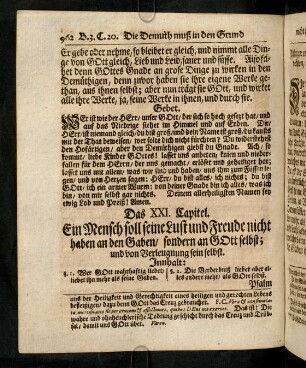 962 B. 3. C. 20. Die Demuth muß in den Grund
Er gebe oder nehme, so bleibet er gleich, und nimmt alle Din-
ge von GOtt gleich, Lieb und Leid, sauer und süsse. Also hat
denn GOttes Gnade an grosse Dinge zu wircken in den
Demüthigen, denn zuvor haben sie ihre eigene Wercke ge-
than, aus ihnen selbst; aber nun trägt sie GOtt, und wircket
alle ihre Wercke, ja, seine Wercke in ihnen, und durch sie.
Gebet.
WEr ist wie der HErr, unser GOtt, der sich so hoch gesetzt hat, und
auf das Niedrige siehet im Himmel und auf Erden. Du
HErr, ist niemand gleich: du bist groß, und dein Name ist groß, du kanst
mit der That beweisen, wer solte dich nicht fürchten? Du widerstehest
den Hofärtigen, aber den Demüthigen giebst du Gnade. Ach, so
kommt, liebe Kinder GOttes! lasset uns anbeten, knien und nieder-
fallen für dem HErrn, der uns gemacht, erlöset und geheiliget hat;
lasset uns mit allem, was wir sind und haben, uns ihm zum Füssen le-
gen, und von Hertzen sagen: HErr, du bist alles, ich nichts; du bist
GOtt, ich ein armer Wurm; von deiner Gnade bin ich alles, was ich
bin, von mir selbst gar nichts. Deinem allerheiligsten Namen sey
ewig Lob und Preiß! Amen.
Das XXI. Capitel.
Ein Mensch soll seine Lust und Freude nicht
haben an den Gaben, sondern an GOtt selbst;
und von Verleugnung sein selbst.
Innhalt:
§. 1. Wer GOtt wahrhaftig liebet,
liebet ihn mehr als seine Gaben.
§. 2. Die Verderbniß liebet aber al-
les andere mehr, als GOtt selbst.
Psalm
uns der Heiligkeit und Gerechtigkeit eines heiligen und gerechten Lebens
befleissigen, dazu denn GOtt das Creutz gebrauchet.
Das ist: Die
wahre und ohnheuchlerische Tödtung geschicht durch das Creutz und Trüb-
sal, damit uns GOtt übet.